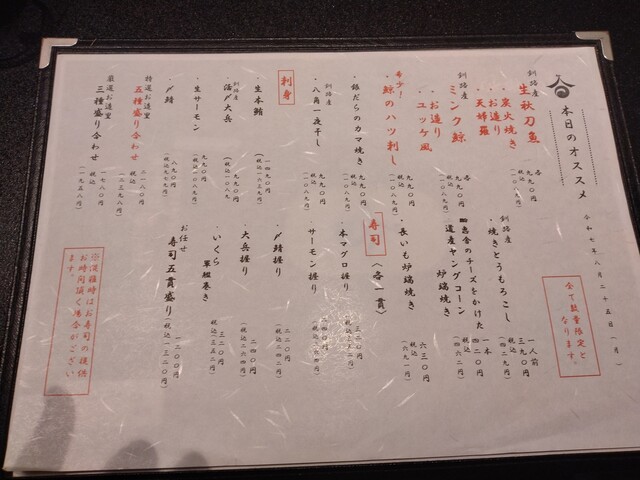 本日のオススメ
令和七年八月二十五日（月）
全て数量限定と
なります。
釧路産
生秋刀魚
・炭火焼き
・お造り
・天婦羅
各 九九〇円
（税込一〇八九）
釧路産
ミンク鯨
・お造り
・ユッケ風
各 九九〇円
（税込一〇八九）
希少！
鯨のハツ刺し
九九〇円
（税込一〇八九）
・銀だらのカマ焼き
九九〇円
（税込一〇八九）
釧路産
・八角一夜干し
刺身
・生本鮪
一四九〇円
（税込一六三九円）
釧路産
・活〆大兵
九九〇円
・生サーモン
九九〇円
・〆鯖
八九〇円
（税込九七九円）
特選お造里
五種盛り合わせ
二一八〇円
税込（二三九八円）
厳選お造里
三種盛り合わせ
一七八〇円
税込（一九五八円）
釧路産
・焼きとうもろこし
一人前
三九〇円
税込（四二九円）
チーズをかけた
ヤングコーン
炉端焼き
一本
四二〇円
税込（四六二）
・長いも炉端焼き
六三〇円
税込（六九一）
寿司〈各一貫〉
・本マグロ握り
三二〇円
税込三五二円
・サーモン握り
三二〇円
・〆鯖握り
二二〇円
・大兵握り
二四〇円
（税込二六四円）
・いくら
軍艦巻き
三二〇円
（税込三五二円）
お任せ
寿司五貫盛り
一二〇〇円
（税込一三二〇円）
※混雑時はお寿司の提供
お時間頂く場合がござい
ます。